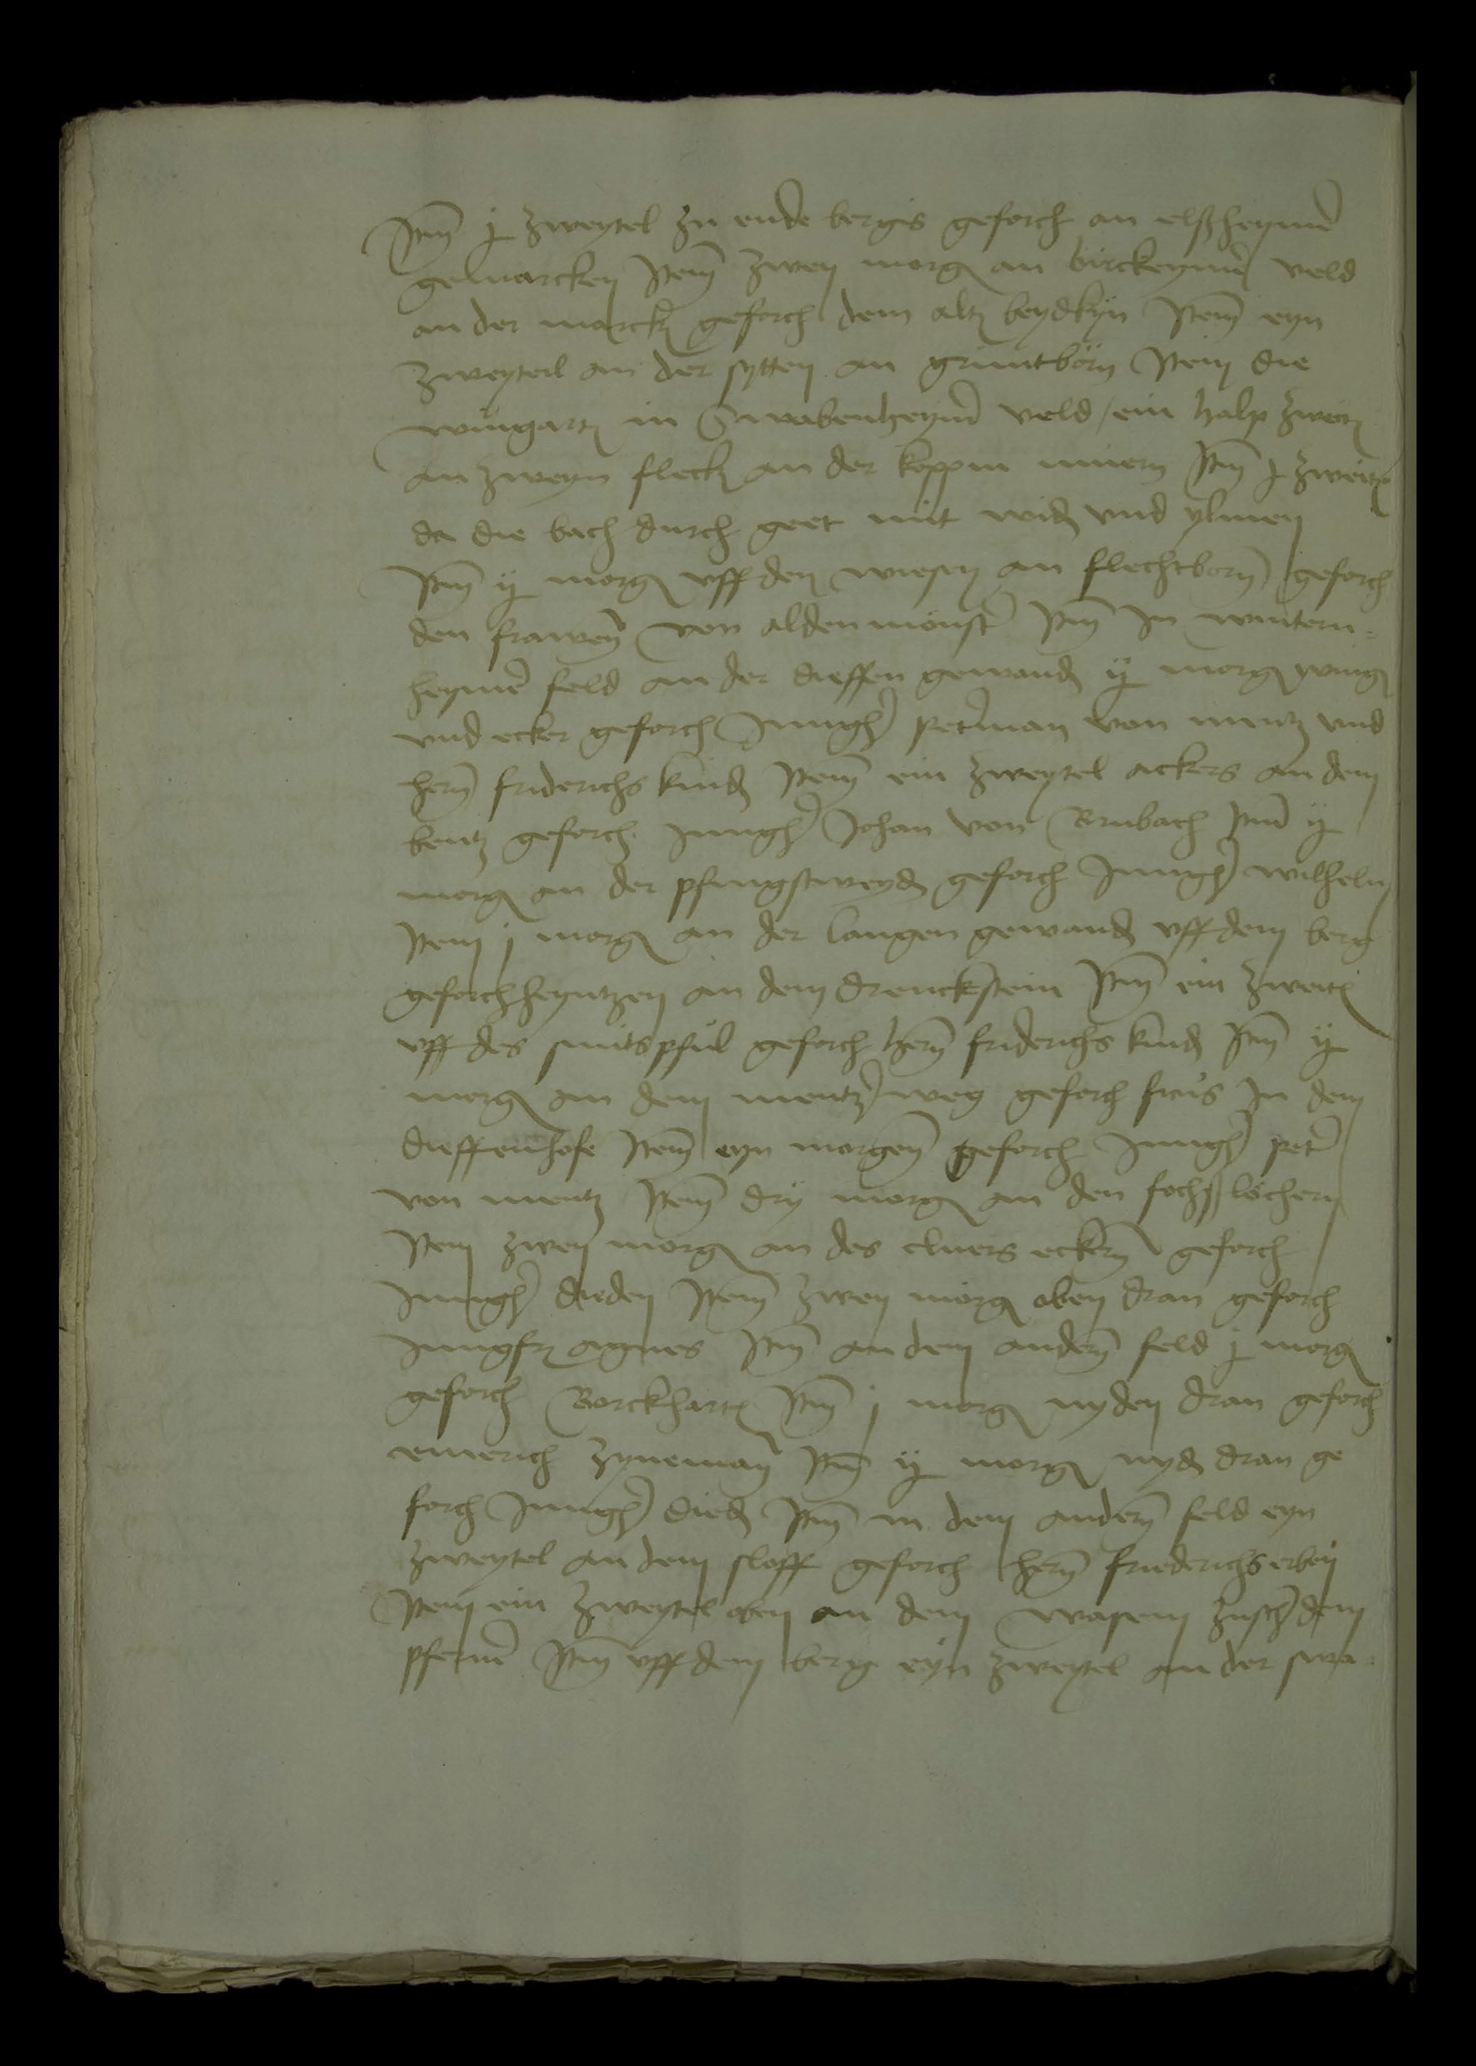 Itm j zweytel zu ende bergis geforch an elßheymer
gemarcken Item zwen morg an birckeymer veld
an der marck geforch dem alt beydkyn Item eyn
zweyteil an der sytten an gruntborn Item die
wingart in Swabenheymer veld / ein halp zweit
an zweyn fleck an der koppin Itm j zweitel
da die bach durch geet mit wid vnd ylmen
Itm ij morg vff den wiesen an flechtborn geforch
den frawen von aldenmonster Itm In wintern=
heymer feld an der dieffen gewand ij morg wing
vnd ecker geforch Jungher peterman von mentz vnd
hern friderichs kind Item ein zweytel ackers an dem
bentz geforch Jungher Johan von Brubach Itm ij
morg an der pfingstweyd geforch Jungher wilhelm
Item j morg an der langen gewand vff dem berg
geforch heyntzen an dem drenckstein Itm ein zweitel
vff des smits pful geforch hern friderichs kind Itm ij
morg an dem mentzer weg geforch In dem
dieffenhofe Item eyn morgen geforch Jungher peter
von mentz Item dry morg an den fochßlöchern
Item zwen morg an des eckern geforch
Jungher dieden Item zwen morg oben dran geforch
Jungfr agnes Itm an dem andern feld j morg
geforch Borckhart Itm j morg nyden dran geforch
emerich zyneman Itm ij morg nyd dran ge
forch Jungher died Itm in dem andern feld eyn
zweytel an dem sloff geforch hern friederichs erben
Item ein zweytel oben an dem wasem zusch dem
pferner Itm vff dem berg eyn zweytel an der swa=